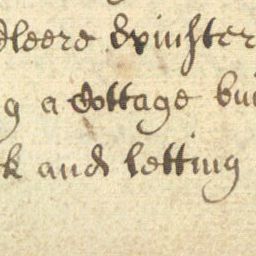 dleere Spinster
g a Cottage bui
k and letting